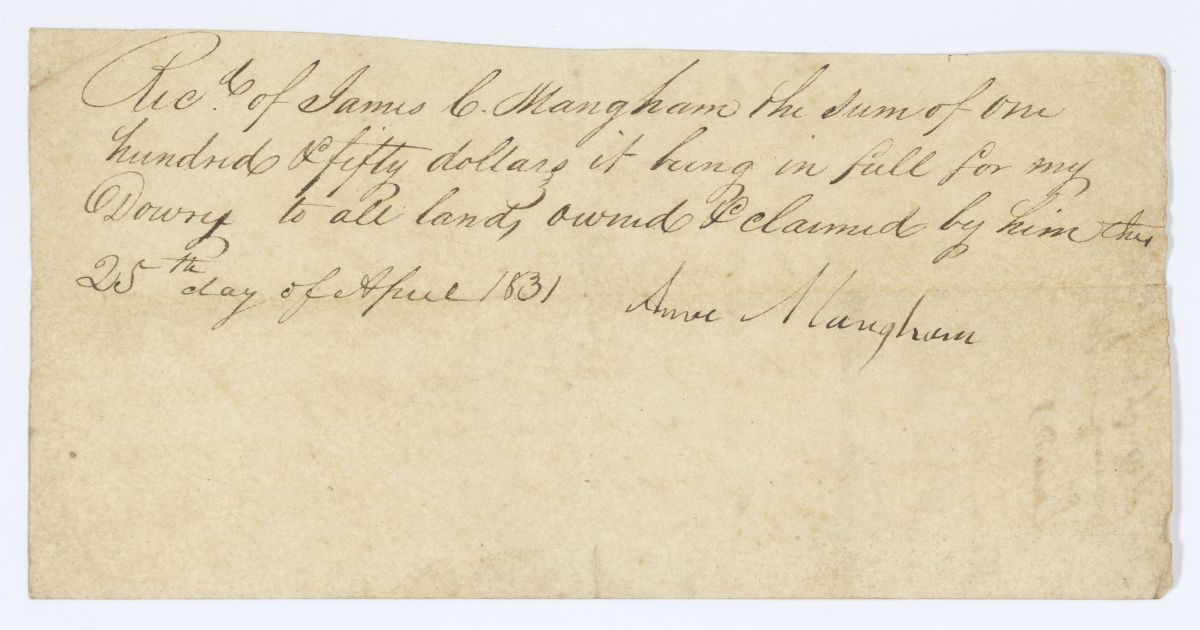 Rec.d of James C. Mangham the sum of one
hundred & fifty dollars it being in full for my
Dowry to all lands owned & claimed by him this
25th day of April 1831 Anne Mangham